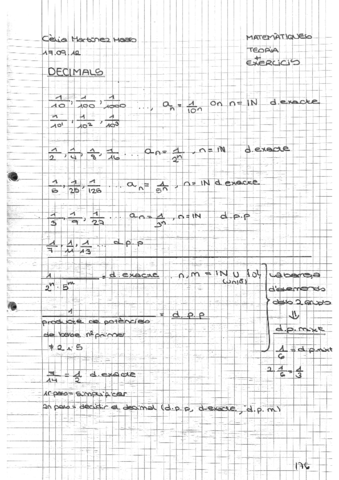 Cèlia Martínez Masó
MATEMÀTIQUES
17.09.12
TEORIA
+
EXERCICIS
DECIMALS
1/10, 1/100, 1/1000 ..., aₙ = 1/10ⁿ on n = IN d. exacte
1/10¹, 1/10², 1/10³
1/2, 1/4, 1/8, 1/16 ... aₙ = 1/2ⁿ, n = IN d. exacte
1/5, 1/25, 1/125 ... aₙ = 1/5ⁿ, n = IN d. exacte
1/3, 1/9, 1/27 aₙ = 1/3ⁿ, n = IN d.p.p
1/7, 1/11, 1/13 ... d.p.p
1/2ⁿ·5ᵐ = d. exacte n, m = IN U {0}
(unió)
1/producte de potències = d.p.p
de base nº primer
≠ 2 i 5
La barreja
d'elements
dels 2 grups
⇓
d.p.mixt
1/6 = d.p.mixt
2·1/6 = 1/3
7/14 = 1/2 d. exacte
1r pas = simplificar
2n pas = decidir el decimal (d.p.p, d. exacte, d.p.m)
176